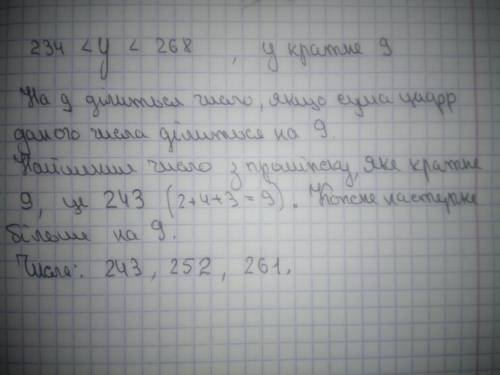 234 < y < 268 , y кратне 9
На 9 ділиться число, якщо сума цифр
даного числа ділиться на 9.
Найменше число з проміжку, яке кратне
9, це 243 (2+4+3=9). Кожне наступне
більше на 9.
Числа: 243, 252, 261.